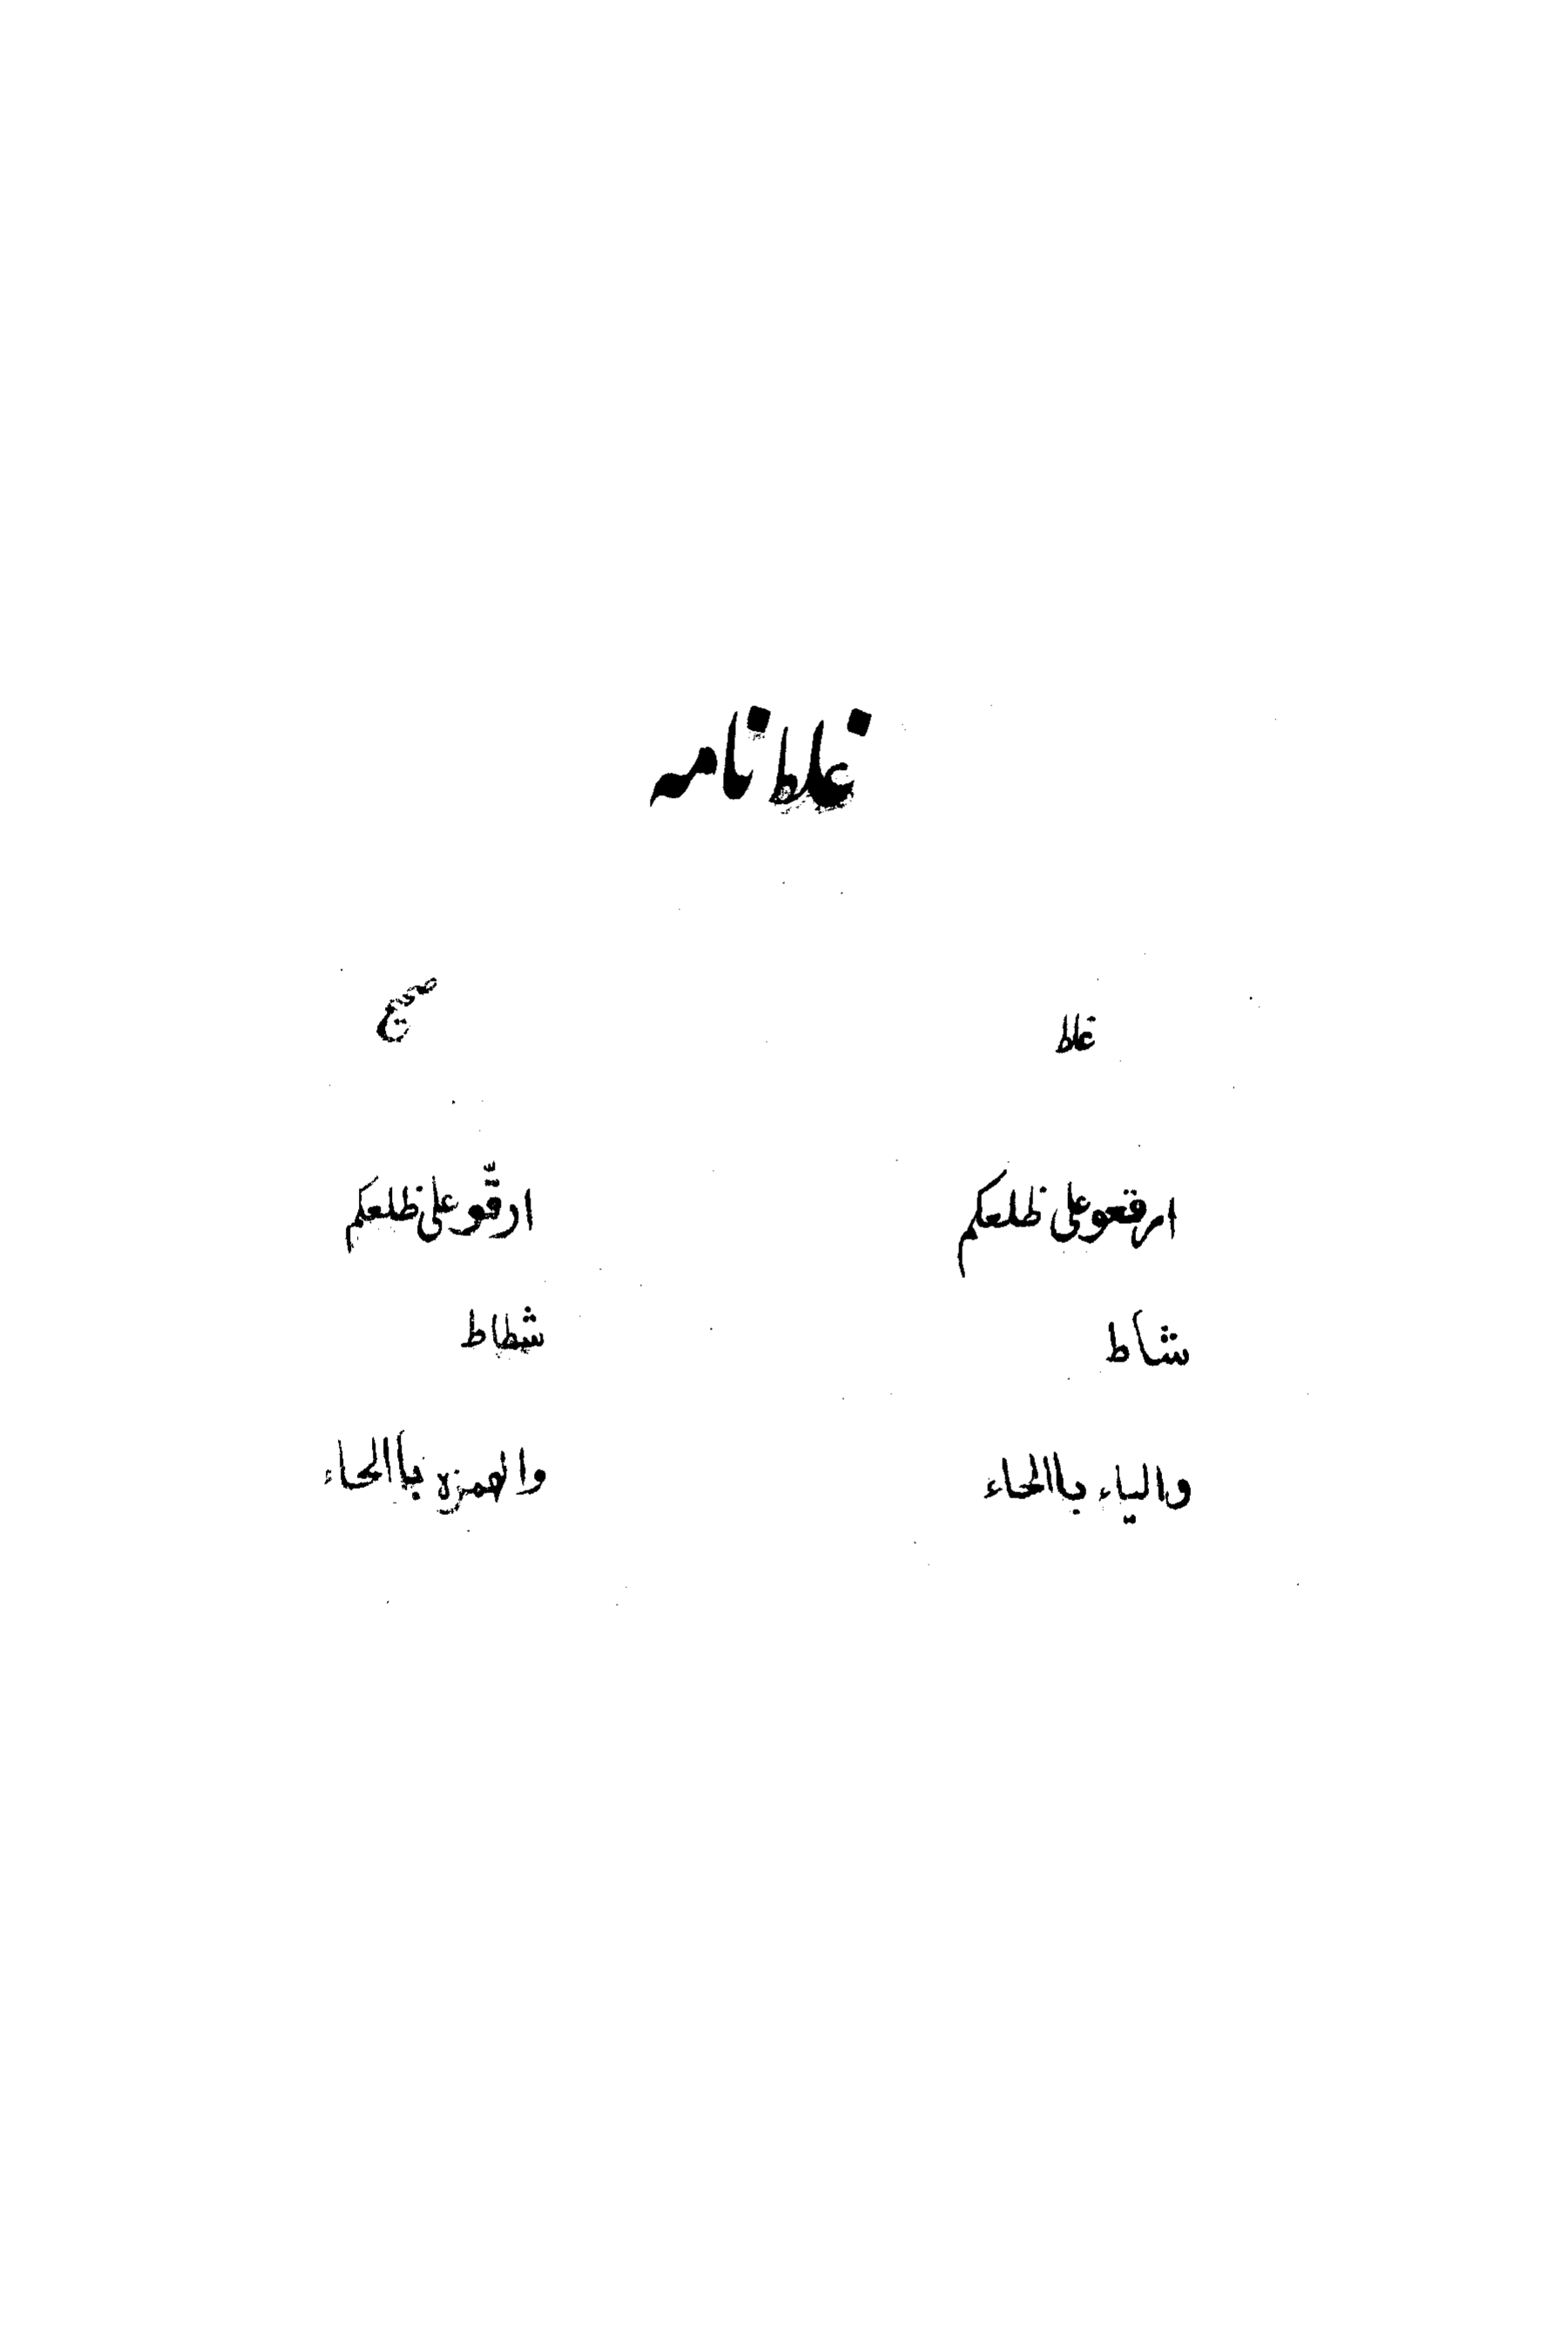 غلط نامہ
غلط صحیح
ارقعو علی ظلعکم ارقّو علی ظلعکم
شاط شطاط
والیاء باالحاء والھمزہ باالحاء